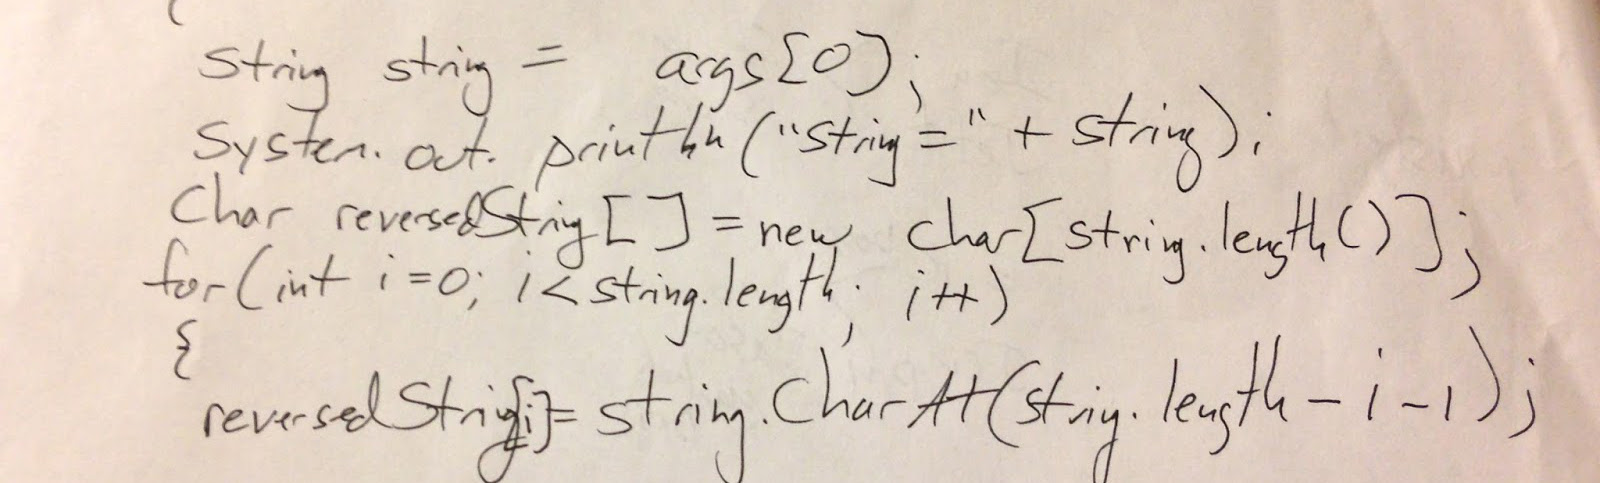 {
String string = args[0];
System.out.println("String=" + string);
Char reversedString[] = new char[string.length()];
for(int i=0; i<string.length; i++)
{
reversedString[i]= string.CharAt(string.length-i-1);